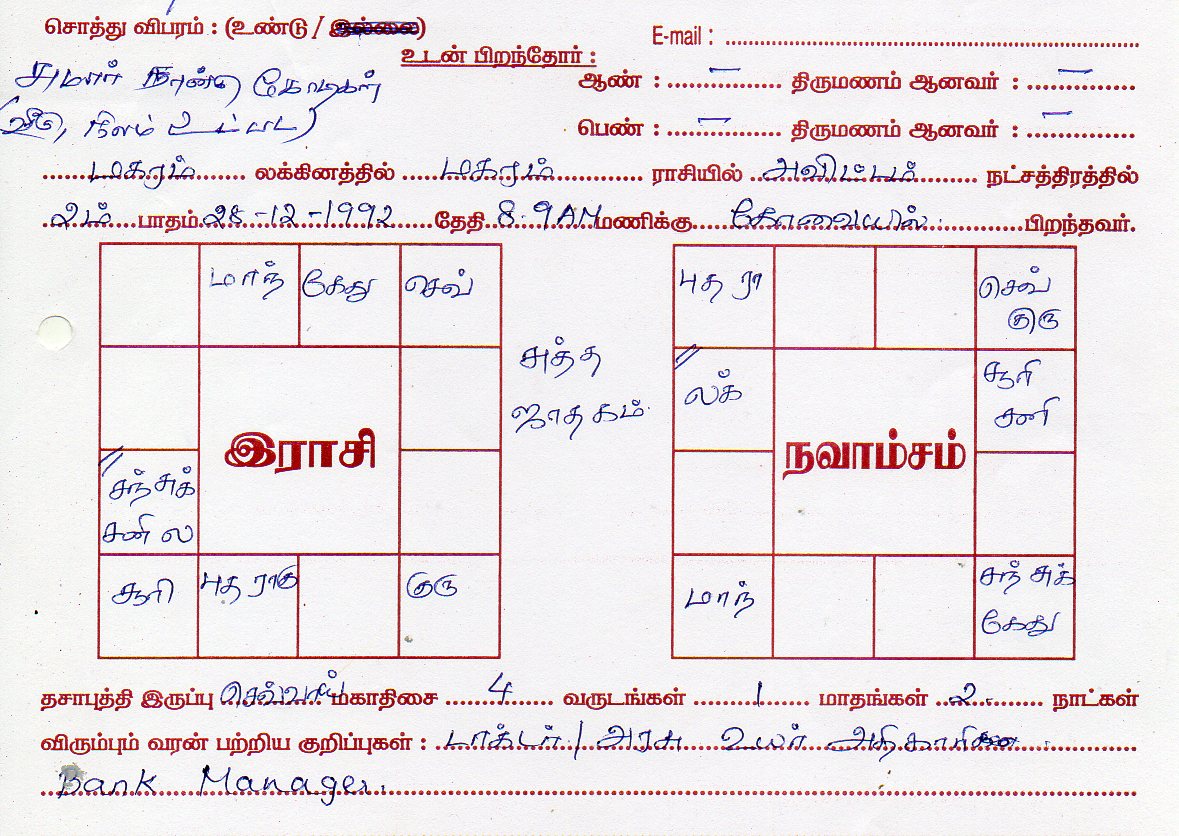 சொத்து விபரம் : (உண்டு / இல்லை)
E-mail :
உடன் பிறந்தோர் :
சுமார் நான்கு கோடிகள்
(வீடு, நிலம் உட்பட)
ஆண் : — திருமணம் ஆனவர் : —
பெண் : — திருமணம் ஆனவர் : —
மகரம் லக்கினத்தில் மகரம் ராசியில் அவிட்டம் நட்சத்திரத்தில்
2ம் பாதம் 28-12-1992 தேதி 8.9AM மணிக்கு கோவையில் பிறந்தவர்.
மாந்
கேது
செவ்
சந் சுக்
சனி ல
சூரி
புத ராகு
குரு
இராசி
சுத்த
ஜாதகம்
புத ரா
செவ்
குரு
லக்
சூரி
சனி
மாந்
சந் சுக்
கேது
நவாம்சம்
தசாபுத்தி இருப்பு செவ்வாய் மகாதிசை 4 வருடங்கள் 1 மாதங்கள் 2 நாட்கள்
விரும்பும் வரன் பற்றிய குறிப்புகள் : டாக்டர் / அரசு உயர் அதிகாரிகள்
Bank Manager.